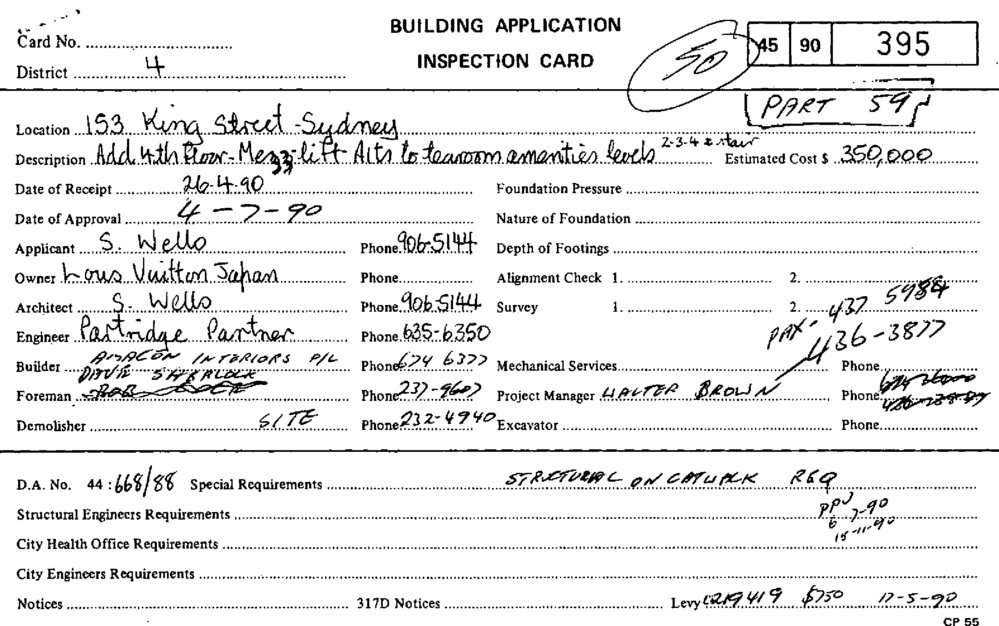 BUILDING APPLICATION
INSPECTION CARD
Card No.
District 4
50
45 90 395
PART 59
Location 153 King Street - Sydney
Description Add 4th Floor - Mezz - lift - Alts to tearoom amenities levels 2-3-4 & stair Estimated Cost $ 350,000
Date of Receipt 26.4.90 Foundation Pressure
Date of Approval 4-7-90 Nature of Foundation
Applicant S. Wello Phone 906-5144 Depth of Footings
Owner Lous Vuitton Japan Phone Alignment Check 1. 2.
Architect S. Wello Phone 906.5144 Survey 1. 2. 437 5984
Engineer Partridge Partner Phone 635-6350 436-3877
Builder AMACON INTERIORS P/L Phone 674 6377 Mechanical Services Phone
DAVE SHERLOCK
Foreman Phone 237-9607 Project Manager WALTER BROWN Phone
Demolisher SITE Phone 232-4940 Excavator Phone
D.A. No. 44 : 668/88 Special Requirements STRUCTURAL ON CATWALK REQ
Structural Engineers Requirements 6-7-90
City Health Office Requirements 15-11-90
City Engineers Requirements
Notices 317D Notices Levy 219419 $750 17-5-90
CP 55